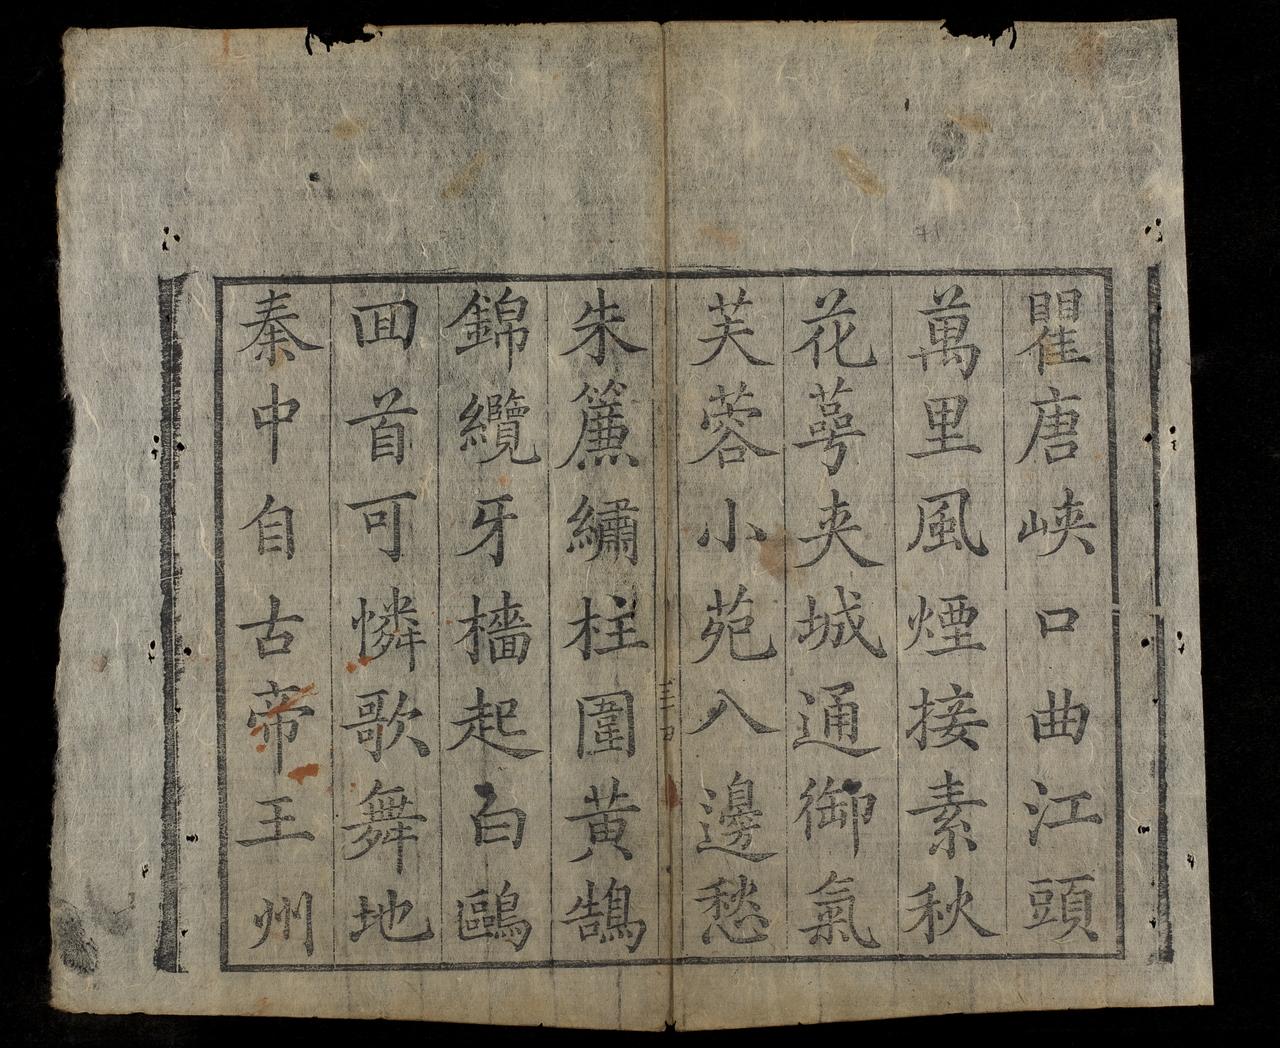 瞿唐峽口曲江頭
萬里風煙接素秋
花萼夾城通御氣
芙蓉小苑入邊愁
朱簾繡柱圍黃鵠
錦纜牙檣起白鷗
回首可憐歌舞地
秦中自古帝王州